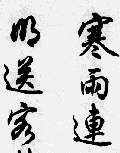 寒雨連
明送客